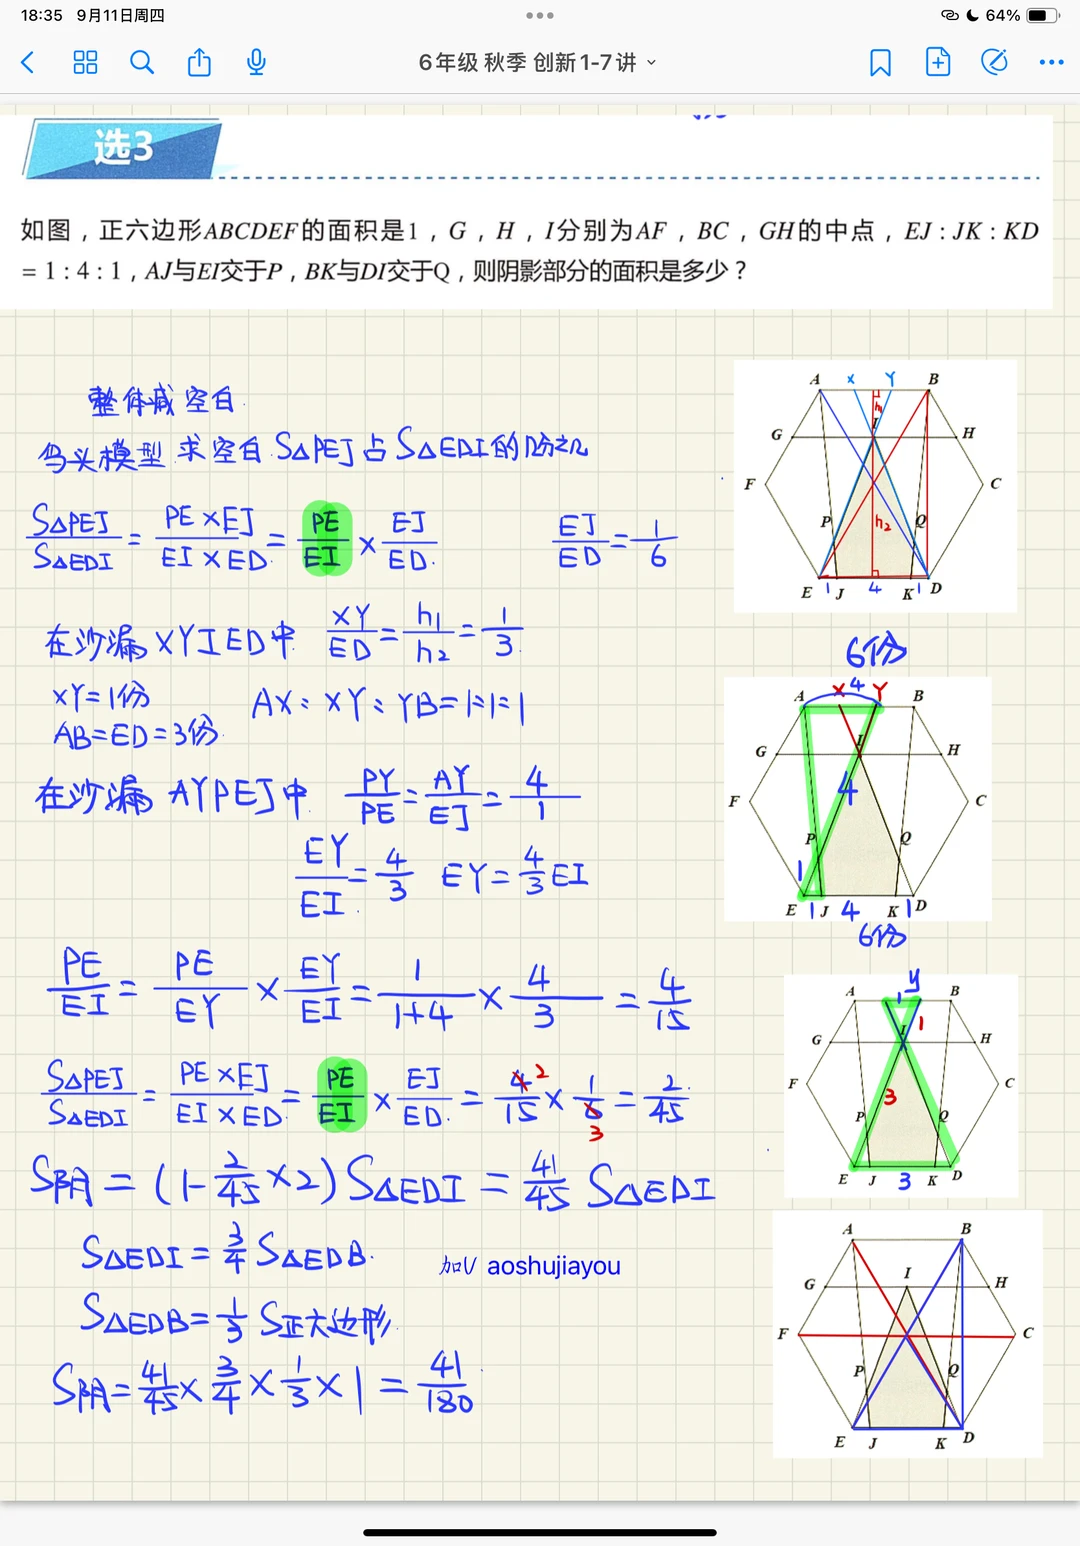 18:35 9月11日周四
64%
6年级 秋季 创新1-7讲
选3
如图，正六边形ABCDEF的面积是1，G，H，I分别为AF，BC，GH的中点，EJ:JK:KD
=1:4:1，AJ与EI交于P，BK与DI交于Q，则阴影部分的面积是多少？
整体减空白
鸟头模型 求空白 S△PEJ占S△EDI的几分之几
S△PEJ/S△EDI = PE×EJ/EI×ED = PE/EI × EJ/ED. EJ/ED = 1/6
在沙漏XYIED中 XY/ED = h1/h2 = 1/3.
XY=1份 AX:XY:YB=1:1:1
AB=ED=3份.
在沙漏 AYPEJ中 PY/PE = AY/EJ = 4/1
EY/EI = 4/3 EY=4/3EI
PE/EI = PE/EY × EY/EI = 1/1+4 × 4/3 = 4/15
S△PEJ/S△EDI = PE×EJ/EI×ED = PE/EI × EJ/ED. = 4/15 × 1/6 = 2/45
2
3
S阴 = (1-2/45×2) S△EDI = 41/45 S△EDI
S△EDI = 3/4 S△EDB.
加V aoshujiayou
S△EDB = 1/3 S正六边形.
S阴 = 41/45 × 3/4 × 1/3 × 1 = 41/180
A X Y B
h1
G I H
F C
P h2 Q
E 1 J 4 K 1 D
6份
A X 4 Y B
G I H
4
F C
P Q
1
E 1 J 4 K 1 D
6份
y
A 1 B
G I 1 H
F 3 C
P Q
E J 3 K D
A B
G I H
F C
P Q
E J K D